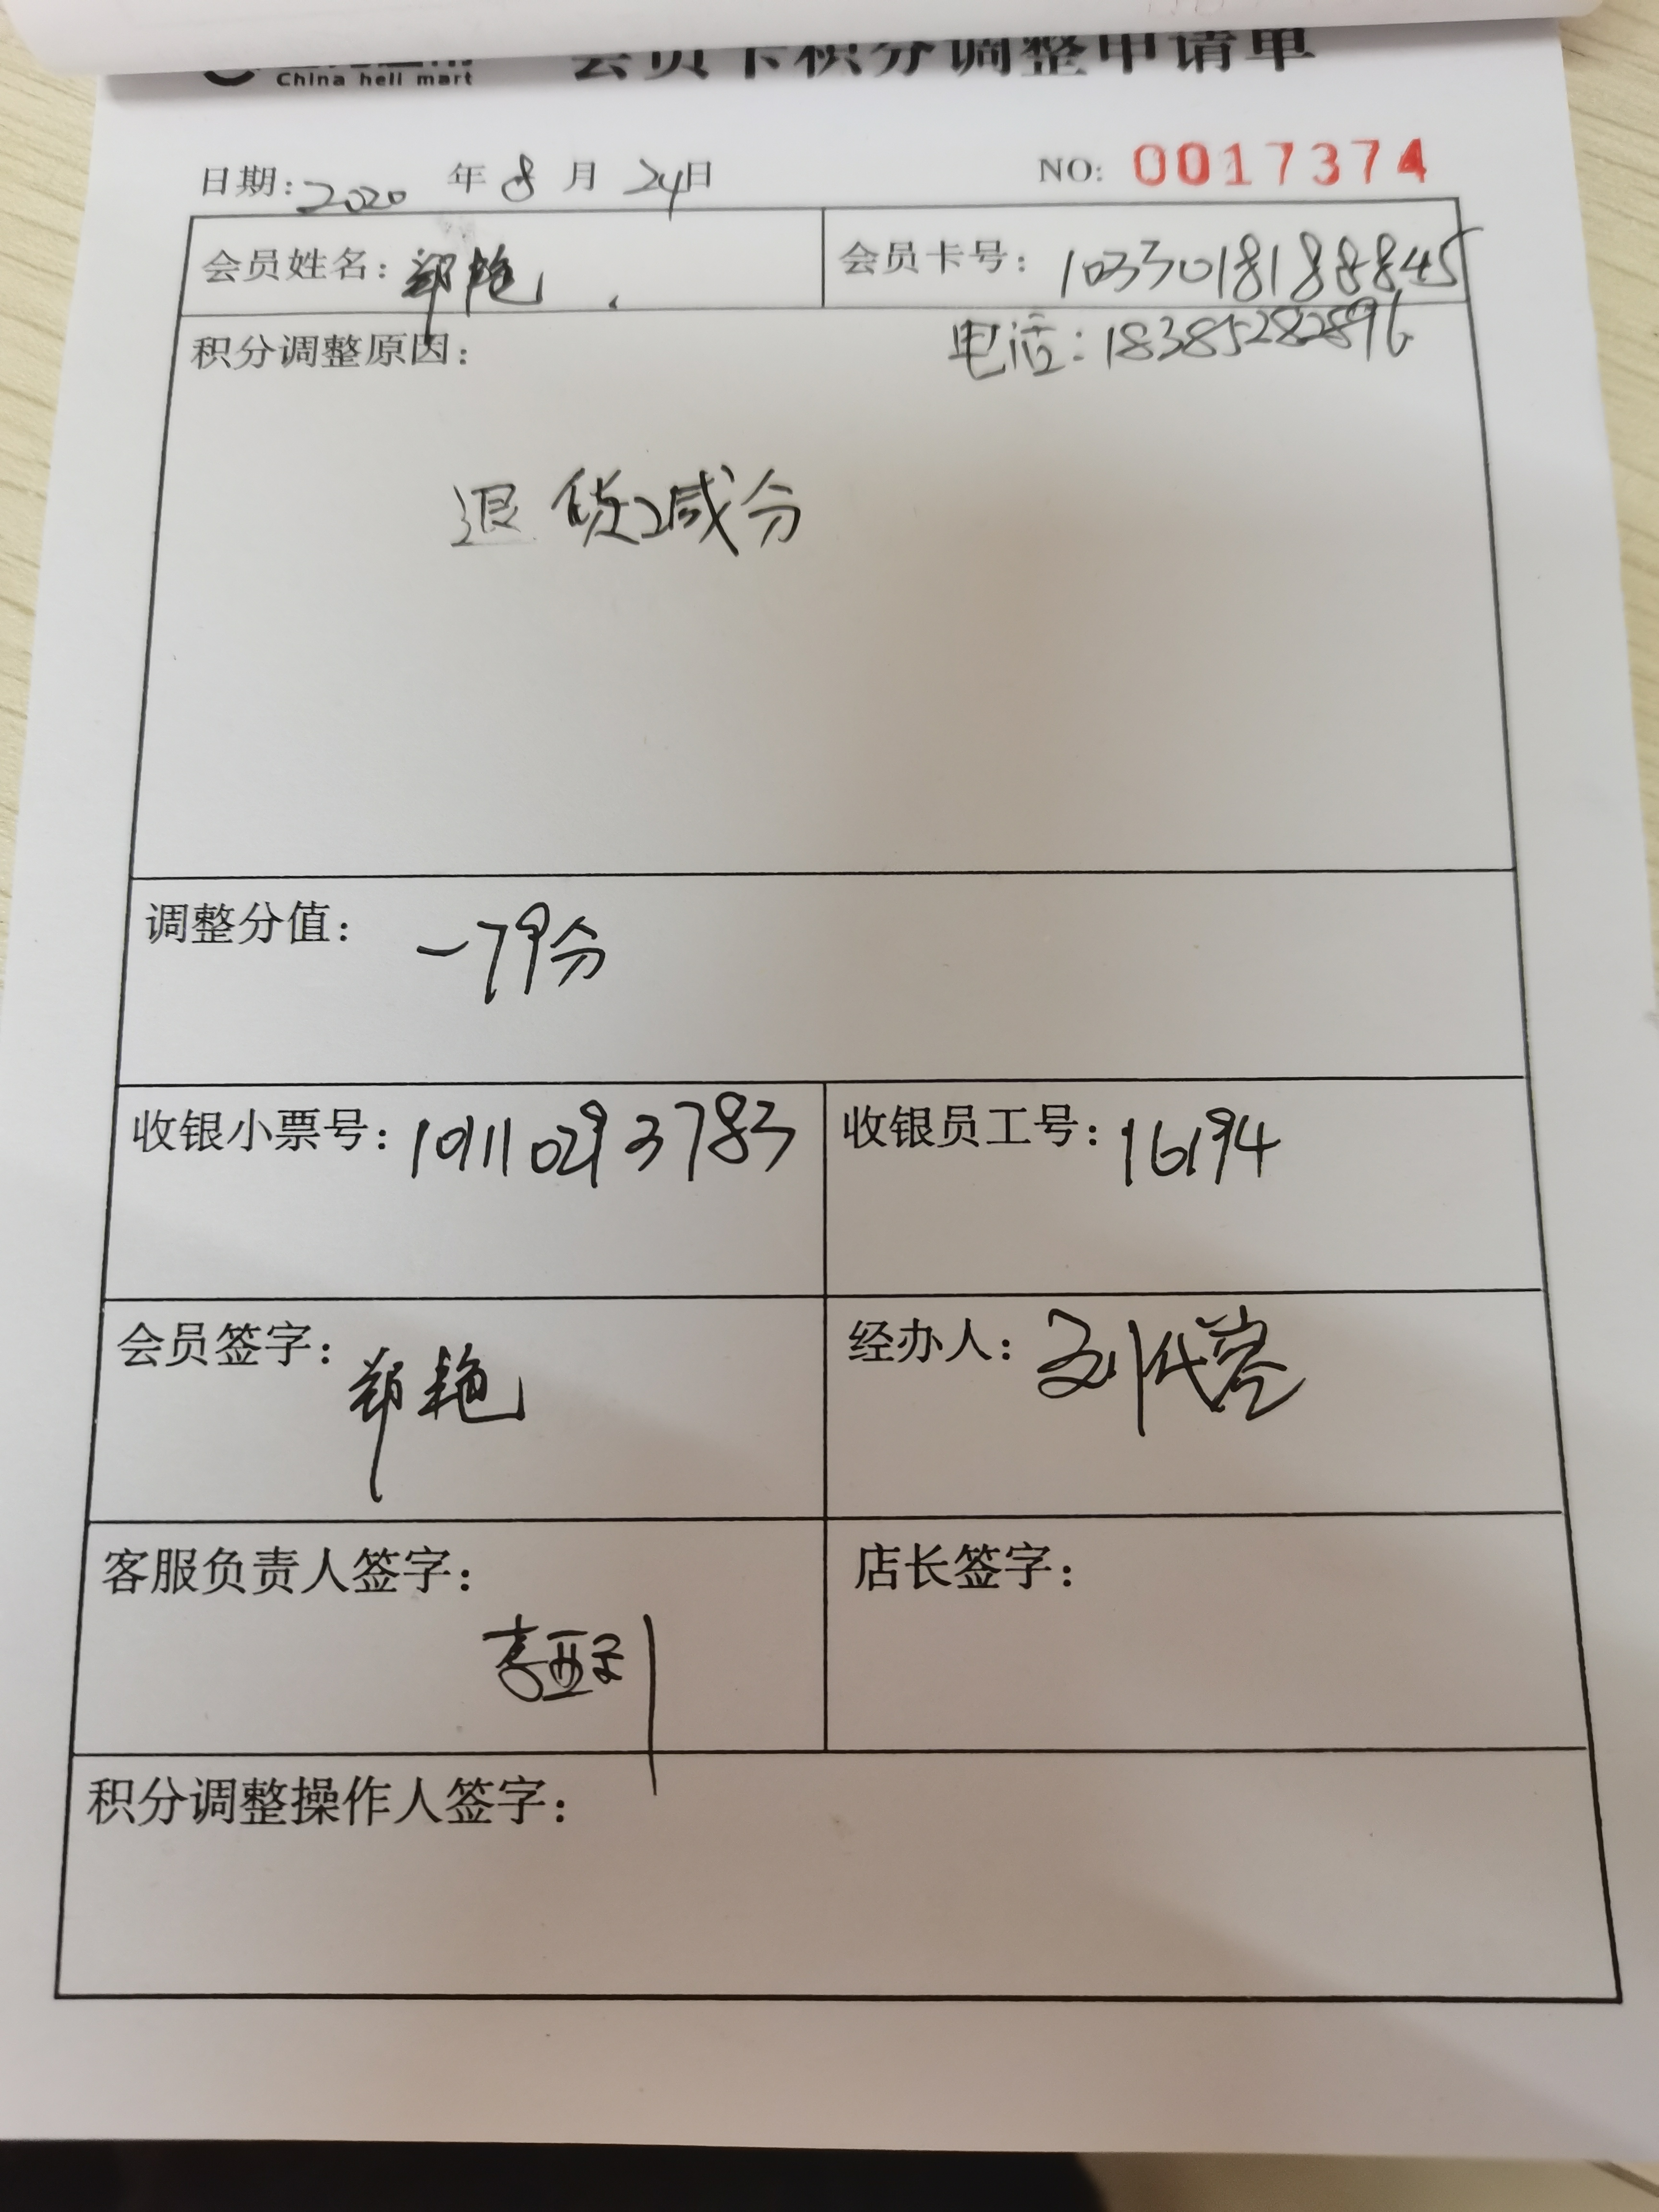 China heli mart
会员卡积分调整申请单
日期:2020 年 8 月 24日
NO: 0017374
会员姓名:郑艳
会员卡号:1033018188845
积分调整原因:
电话:18385282896
退货减分
调整分值: -79分
收银小票号:10110293783
收银员工号:16194
会员签字:郑艳
经办人:刘代容
客服负责人签字:
店长签字:
积分调整操作人签字: